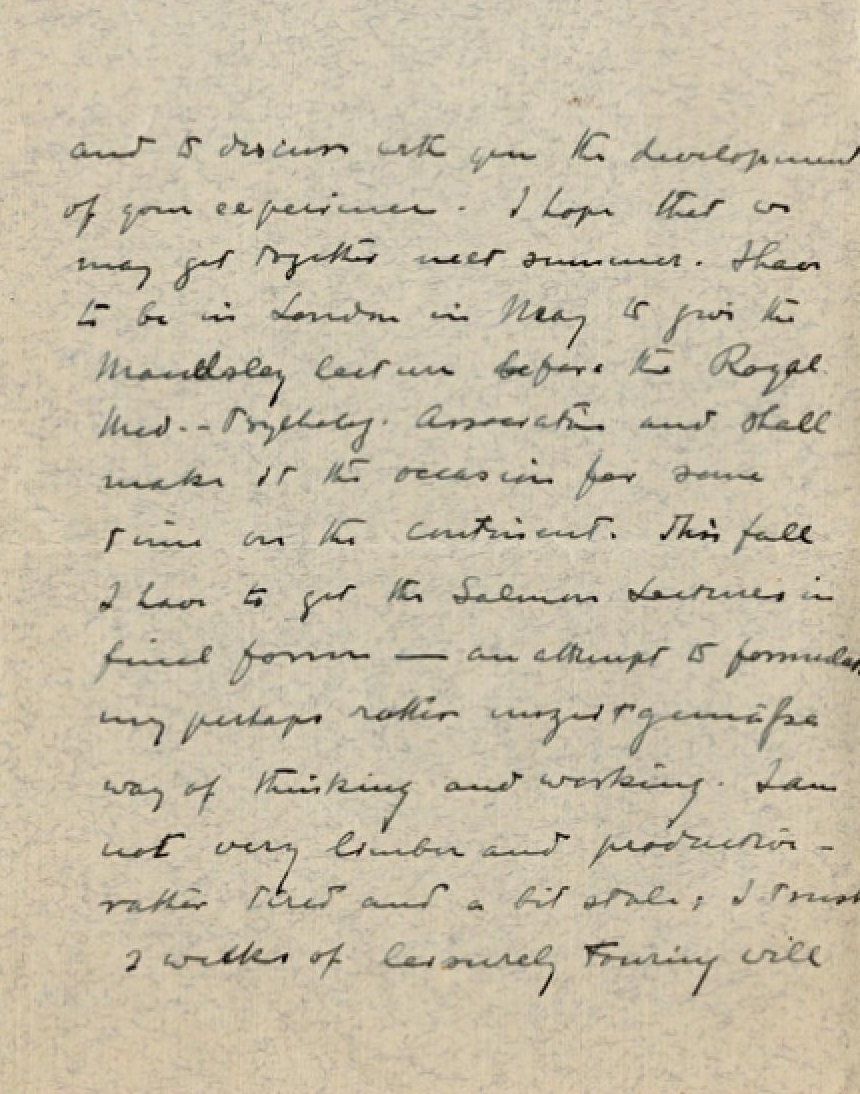 and to discuss with you the development
of your experiences. I hope that we
may get together next summer. I have
to be in London in May to give the
Maudsley lecture before the Royal
Med.-Psycholog. Association and shall
make it the occasion for some
time on the continent. This fall
I have to get the Salmon Lectures in
final form — an attempt to formulate
my perhaps rather unzeitgemäße
way of thinking and working. I am
not very limber and productive -
rather tired and a bit stale; I trust
weeks of leisurely touring will